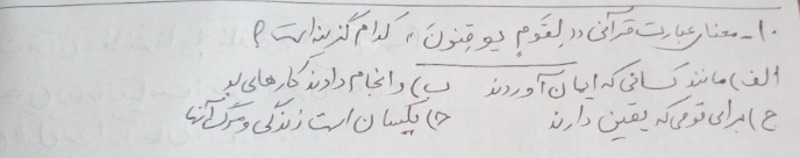 ۱۰- معنای عبارت قرآنی «لِقَومٍ یوقِنونَ» کدام گزینه است؟
الف) مانند کسانی که ایمان آوردند ب) و انجام دادند کارهای بد
ج) برای قومی که یقین دارند د) یکسان است زندگی و مرگ آنها